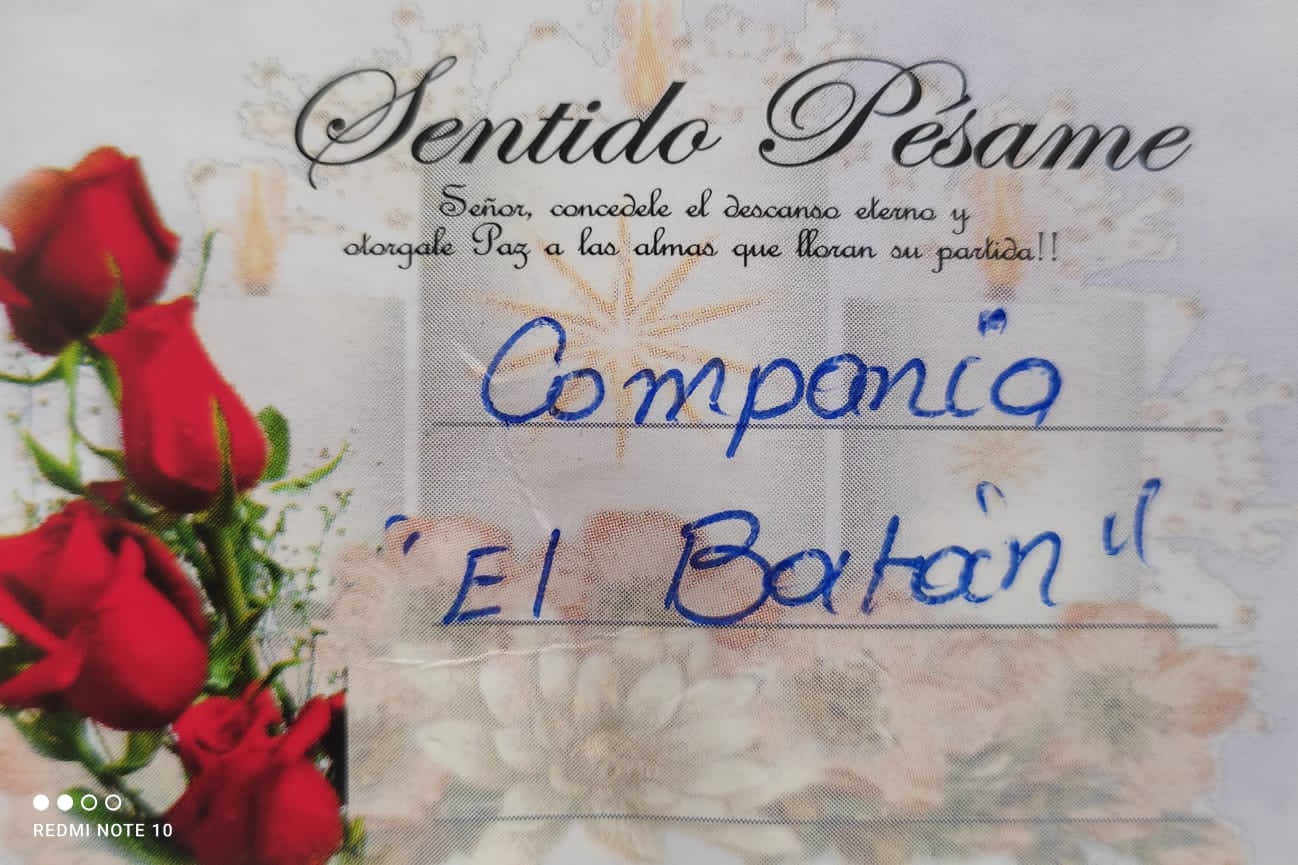 Sentido Pésame
Señor, concedele el descanso eterno y
otorgale Paz a las almas que lloran su partida!!
Compania
"El Batán"
REDMI NOTE 10